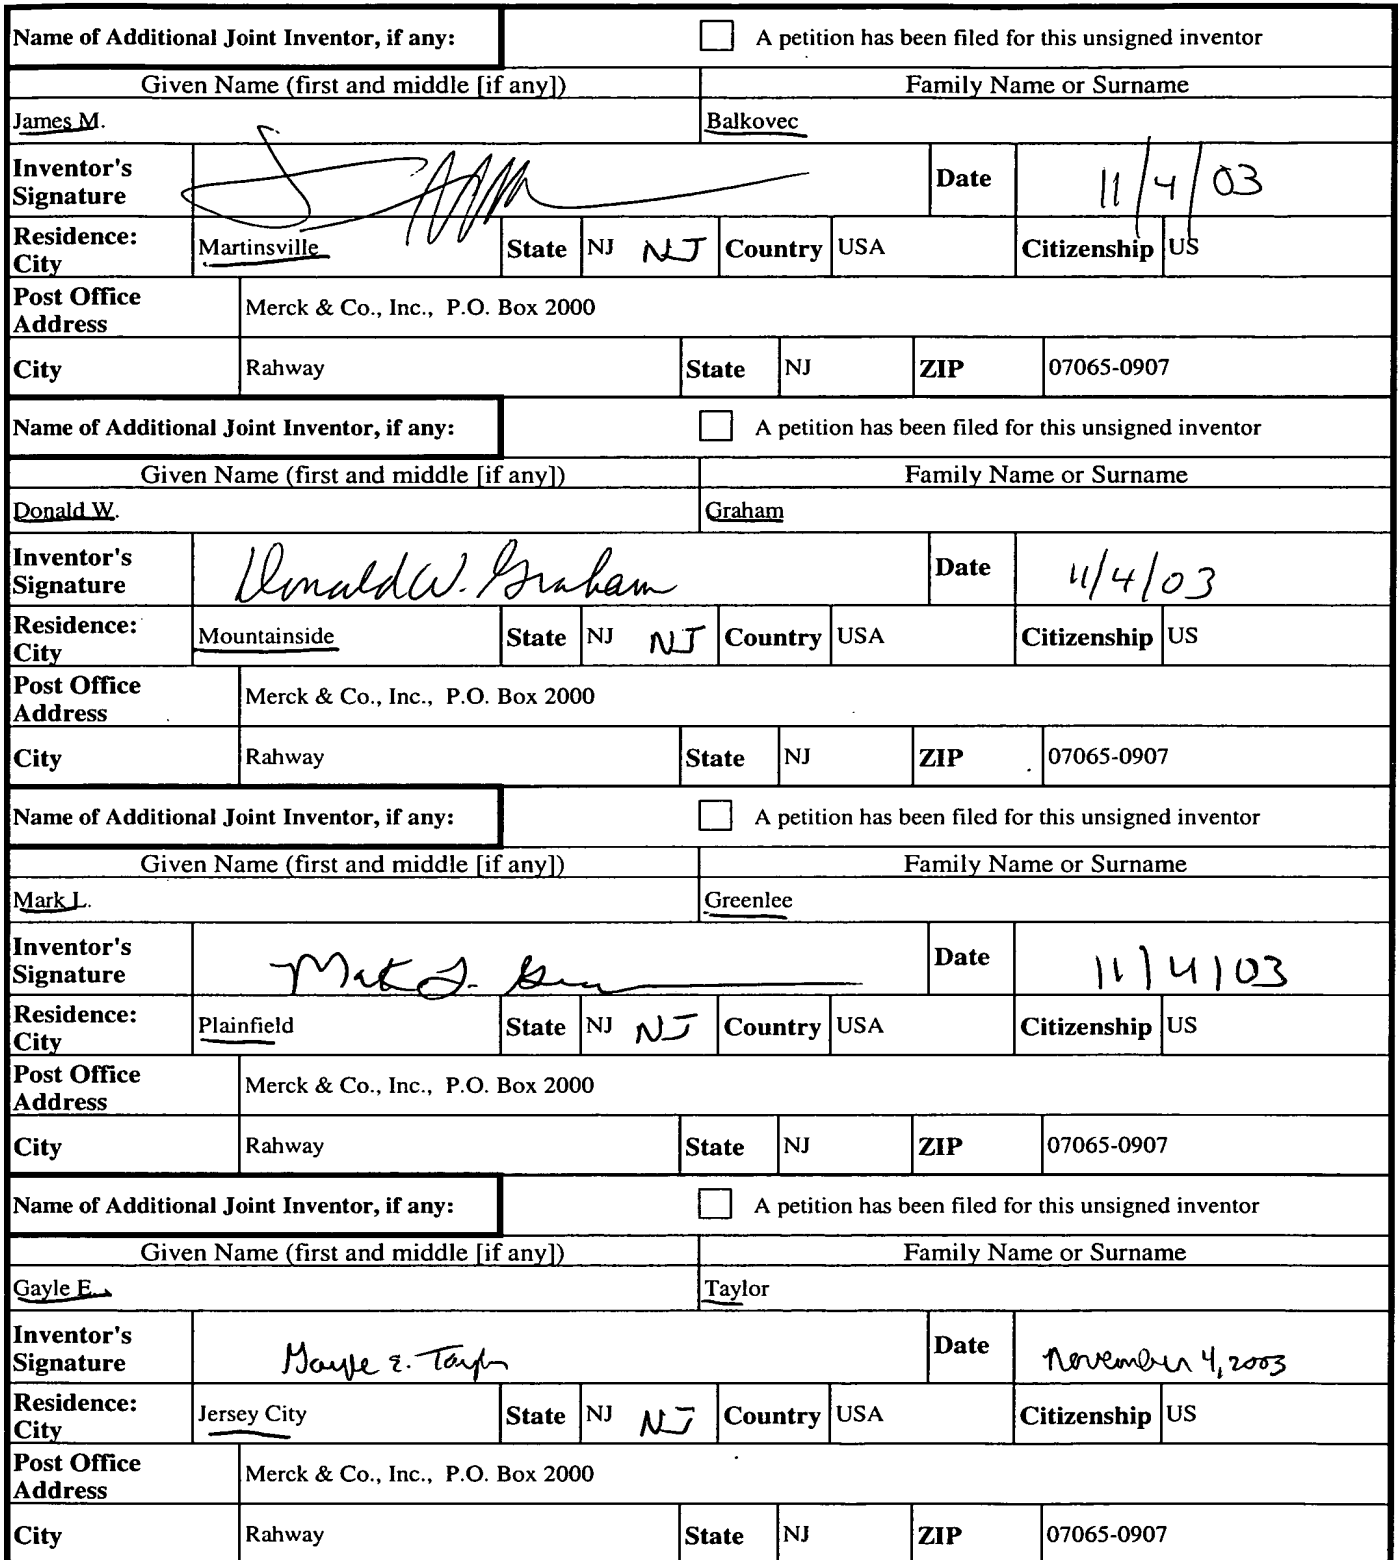 Name of Additional Joint Inventor, if any: A petition has been filed for this unsigned inventor
Given Name (first and middle [if any]) Family Name or Surname
James M. Balkovec
Inventor's
Signature Date 11/4/03
Residence:
City Martinsville State NJ NJ Country USA Citizenship US
Post Office
Address Merck & Co., Inc., P.O. Box 2000
City Rahway State NJ ZIP 07065-0907
Name of Additional Joint Inventor, if any: A petition has been filed for this unsigned inventor
Given Name (first and middle [if any]) Family Name or Surname
Donald W. Graham
Inventor's
Signature Donald W. Graham Date 11/4/03
Residence:
City Mountainside State NJ NJ Country USA Citizenship US
Post Office
Address Merck & Co., Inc., P.O. Box 2000
City Rahway State NJ ZIP 07065-0907
Name of Additional Joint Inventor, if any: A petition has been filed for this unsigned inventor
Given Name (first and middle [if any]) Family Name or Surname
Mark L. Greenlee
Inventor's
Signature Mark L. Date 11/4/03
Residence:
City Plainfield State NJ NJ Country USA Citizenship US
Post Office
Address Merck & Co., Inc., P.O. Box 2000
City Rahway State NJ ZIP 07065-0907
Name of Additional Joint Inventor, if any: A petition has been filed for this unsigned inventor
Given Name (first and middle [if any]) Family Name or Surname
Gayle E. Taylor
Inventor's
Signature Gayle E. Taylor Date November 4, 2003
Residence:
City Jersey City State NJ NJ Country USA Citizenship US
Post Office
Address Merck & Co., Inc., P.O. Box 2000
City Rahway State NJ ZIP 07065-0907